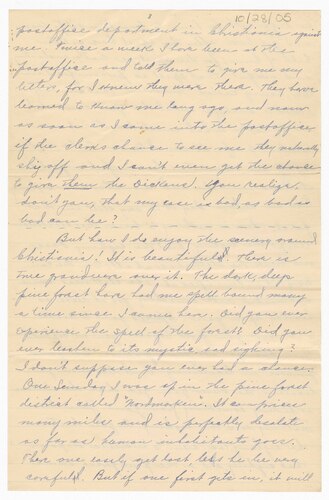 10/28/05
postoffice department in Christiania against
me. Twice a week I have been at the
postoffice and told them to give me my
letters, for I knew they were there. They have
learned to know me long ago, and now
as soon as I come into the postoffice,
if the clerks chance to see me they naturally
sly off and I can't even get the chance
to give them the Dickens! You realize,
don't you, that my case is bad, as bad as
bad can be?
But how I do enjoy the scenery around
Christiania! It is beautiful! There is
true grandeur over it. The dark, deep
pine forest have had me spell bound many
a time since I came here. Did you ever
experience the spell of the forest? Did you
ever hearken to its mystic, sad sighing?
I don't suppose you ever had a chance.
One Sunday I was up in the pine forest
district called "Nordmarken". It comprises
many miles and is perfectly desolate
as far as human inhabitants goes.
There one easily get lost lest he be very
careful. But if one first gets in, it will